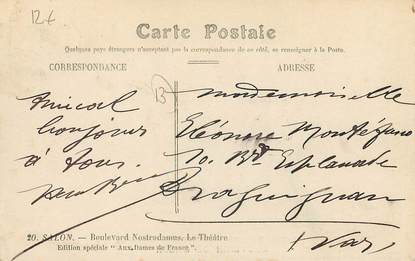 12€
Carte Postale
Quelques pays étrangers n'acceptant pas la correspondance de ce côté, se renseigner à la Poste.
CORRESPONDANCE
ADRESSE
13
Amical
bonjour
à tous.
Mademoiselle
Eléonore
10. Bd Esplanade
Draguignan
Var
20. SALON. — Boulevard Nostradamus. Le Théâtre
Edition spéciale "Aux Dames de France".